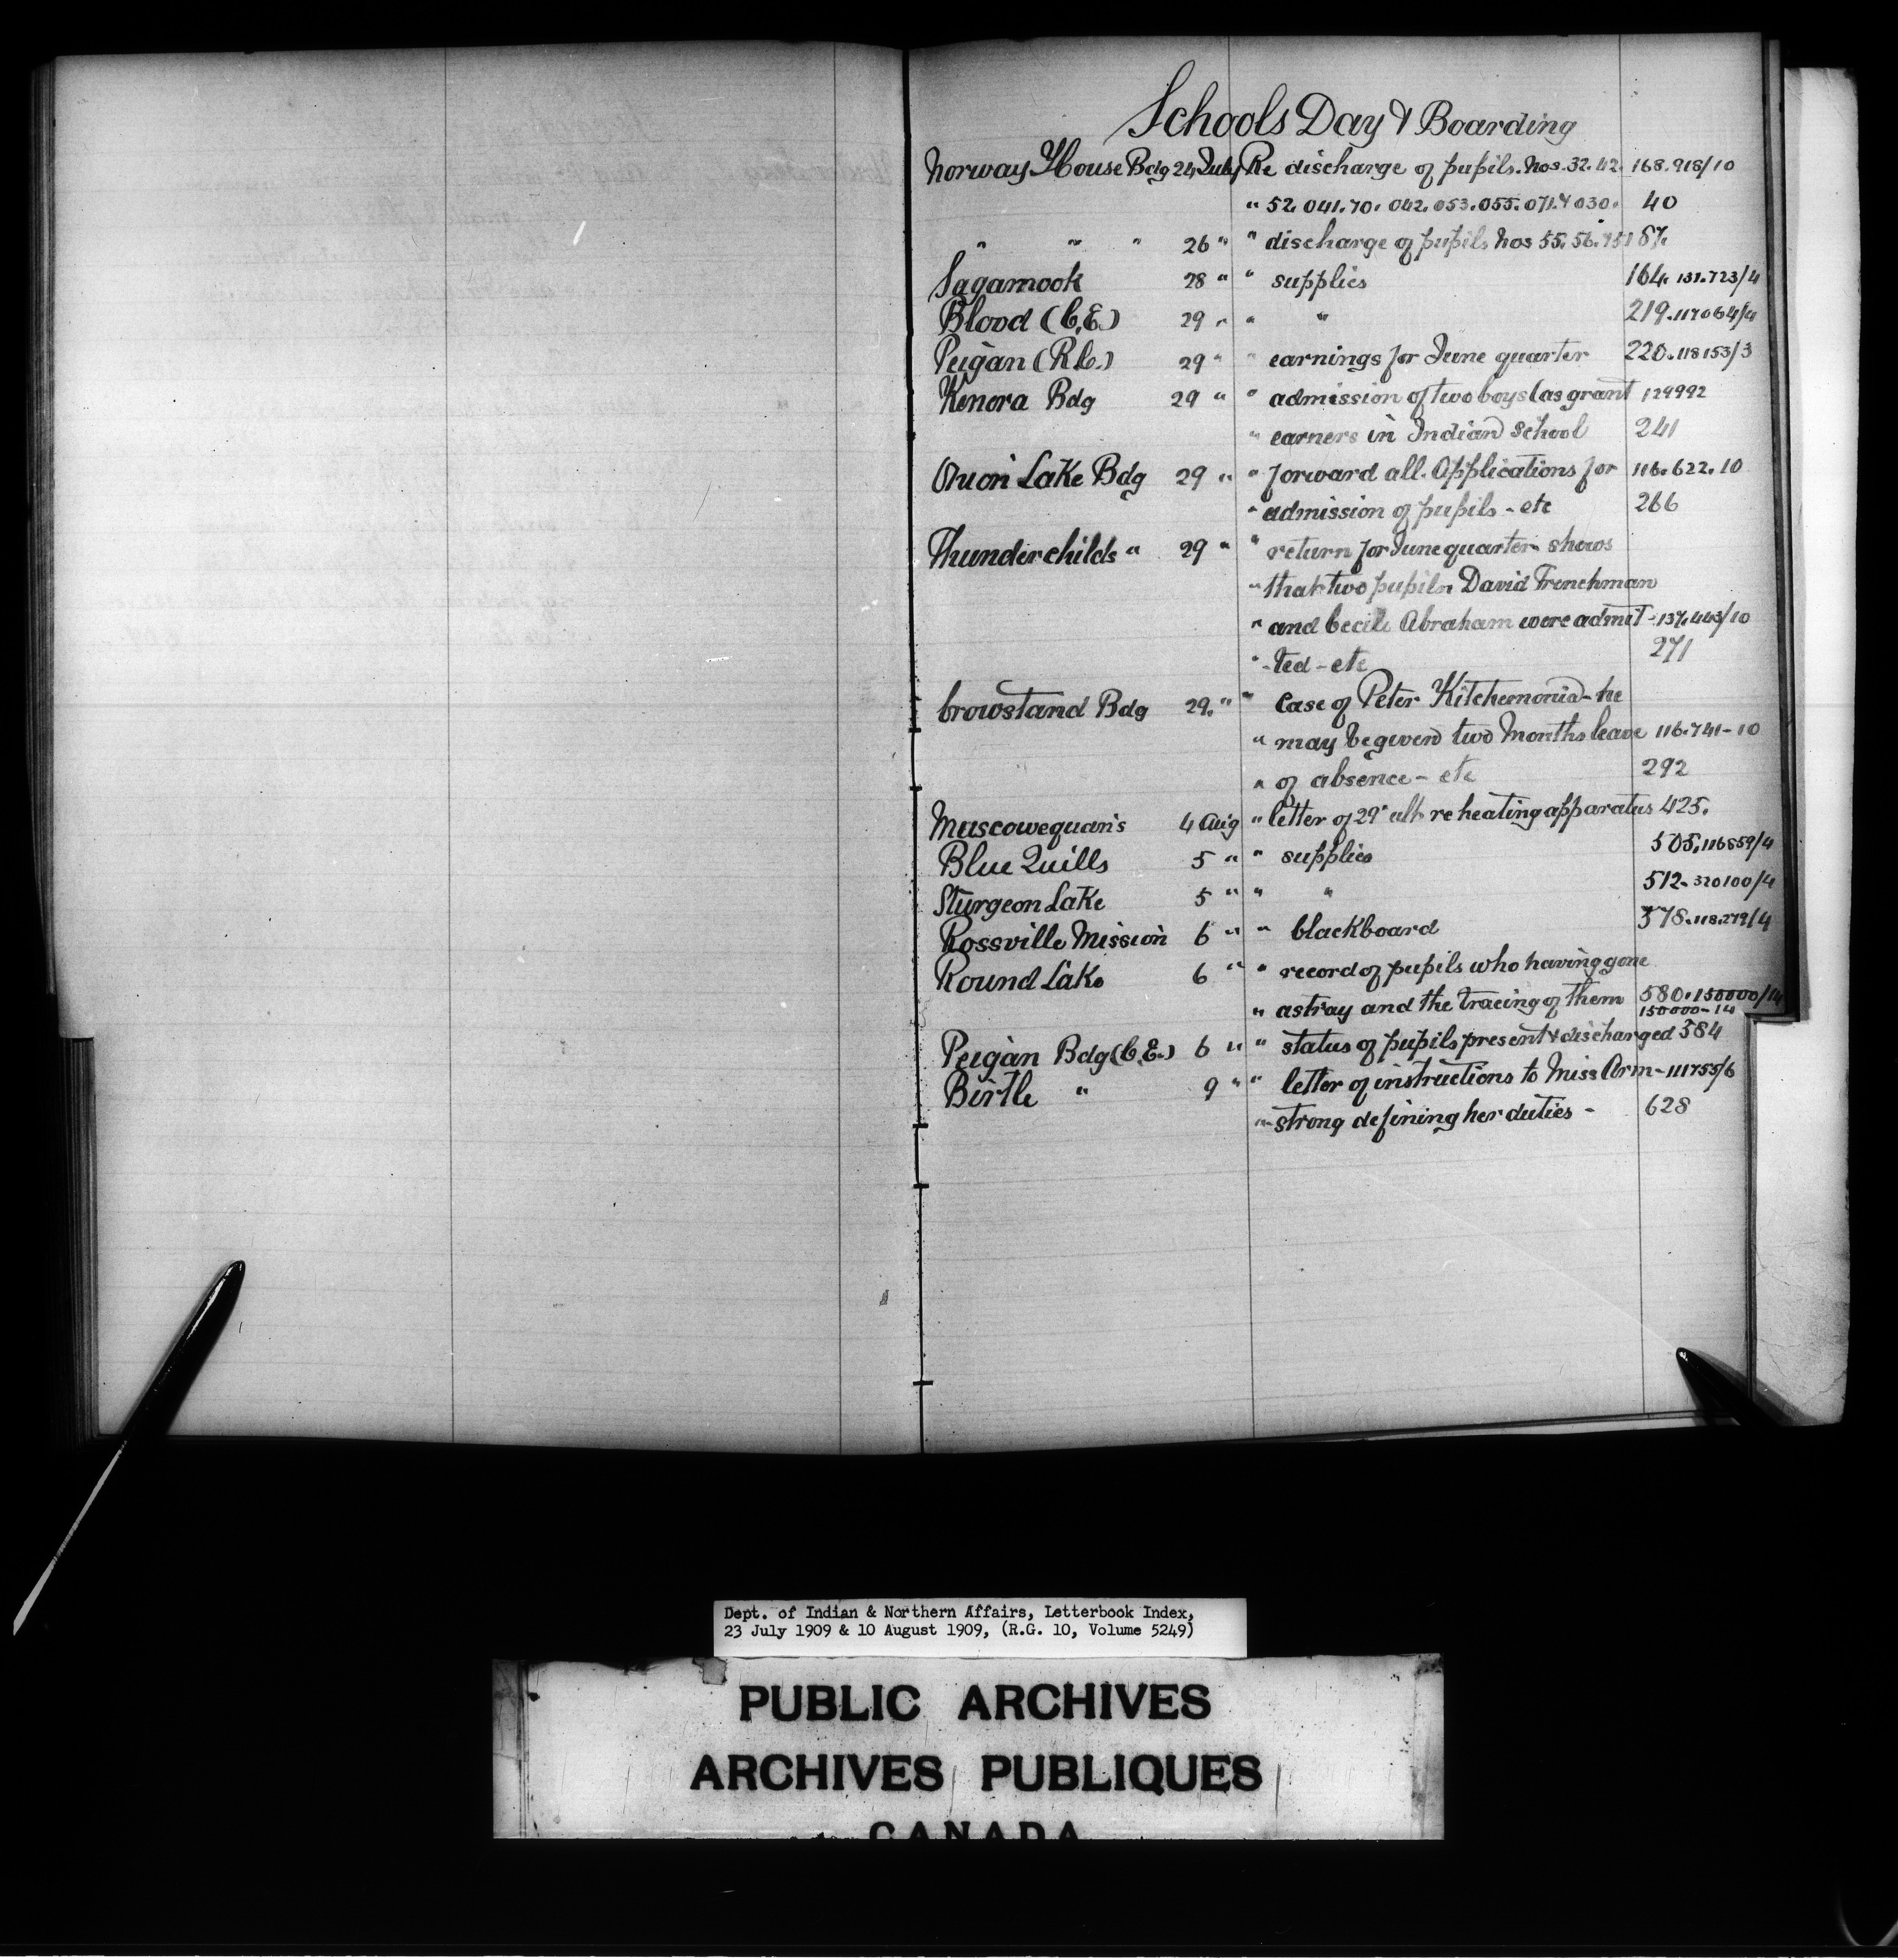 Schools Day & Boarding
Norway House Bdg 24 July Re discharge of pupils. Nos. 32. 42. 168.918/10
" 52. 041. 70. 042. 053. 055. 071. & 030. 40
" " " 26 " " discharge of pupils Nos 55. 56. 87.
Sagamook 28 " " supplies 164. 131.723/4
Blood (C.E.) 29 " " " 219. 117064/4
Peigan (R.C.) 29 " " earnings for June quarter 220. 118153/3
Kenora Bdg 29 " " admission of two boys (as grant 129992
" earners in Indian School 241
Onion Lake Bdg 29 " " forward all Applications for 116.622.10
" admission of pupils - etc 266
Thunderchilds " 29 " " return for June quarter shows
" that two pupils David Frenchman
" and Cecile Abraham were admit- 137.443/10
" -ted - etc 271
Crowstand Bdg 29. " " Case of Peter Kitchemonia - he
" may be given two Months leave 116.741-10
" of absence - etc 292
Muscowequan's 4 Aug " letter of 29" ult re heating apparatus 425.
Blue Quills 5 " " supplies 505. 116859/4
Sturgeon Lake 5 " " " 512- 320100/4
Rossville Mission 6 " " blackboard 578. 118.279/4
Round Lake 6 " " record of pupils who having gone
" astray and the tracing of them 580. 150000/14
150000-14
Peigan Bdg (C.E.) 6 " " status of pupils present & discharged 584
Birtle " 9 " " letter of instructions to Miss Arm- 111755/6
" -strong defining her duties - 628
Dept. of Indian & Northern Affairs, Letterbook Index,
23 July 1909 & 10 August 1909, (R.G. 10, Volume 5249)
PUBLIC ARCHIVES
ARCHIVES PUBLIQUES
CANADA